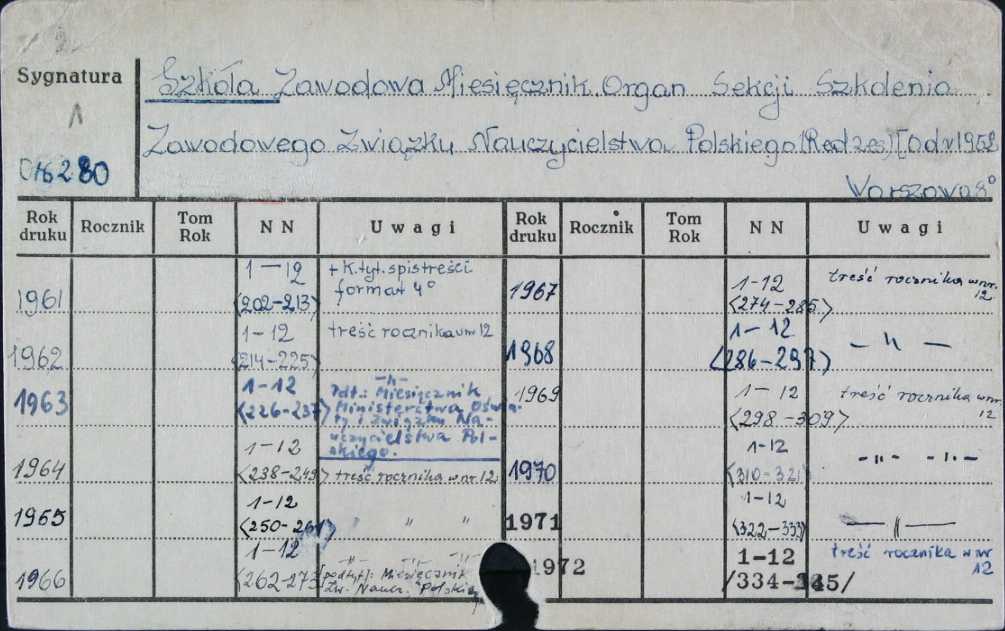 Sygnatura
016280
Szkoła Zawodowa Miesięcznik. Organ Sekcji Szkolenia
Zawodowego Związku Nauczycielstwa Polskiego (Red zes) [od r 1958
Warszawa 8°
Rok druku Rocznik Tom Rok NN Uwagi Rok druku Rocznik Tom Rok NN Uwagi
1961 1-12 <202-213> + K. tyt. spis treści format 4°
1962 1-12 <214-225> treść rocznika w nr 12
1963 1-12 <226-237> -"- Pdt.: Miesięcznik Ministerstwa Oświaty i Związku Nauczycielstwa Polskiego.
1964 1-12 <238-249> treść rocznika w nr. 12
1965 1-12 <250-261> " " "
1966 1-12 <262-273 -"- -"- -"- [podtyt]: Miesięcznik Zw. Naucz. Polskieg
1967 1-12 <274-285> treść rocznika w nr. 12
1968 1-12 <286-297> -"-
1969 1-12 <298-309> treść rocznika w nr. 12
1970 1-12 <310-321> -"- -"-
1971 1-12 <322-333> -"-
1972 1-12 /334-345/ treść rocznika w nr 12